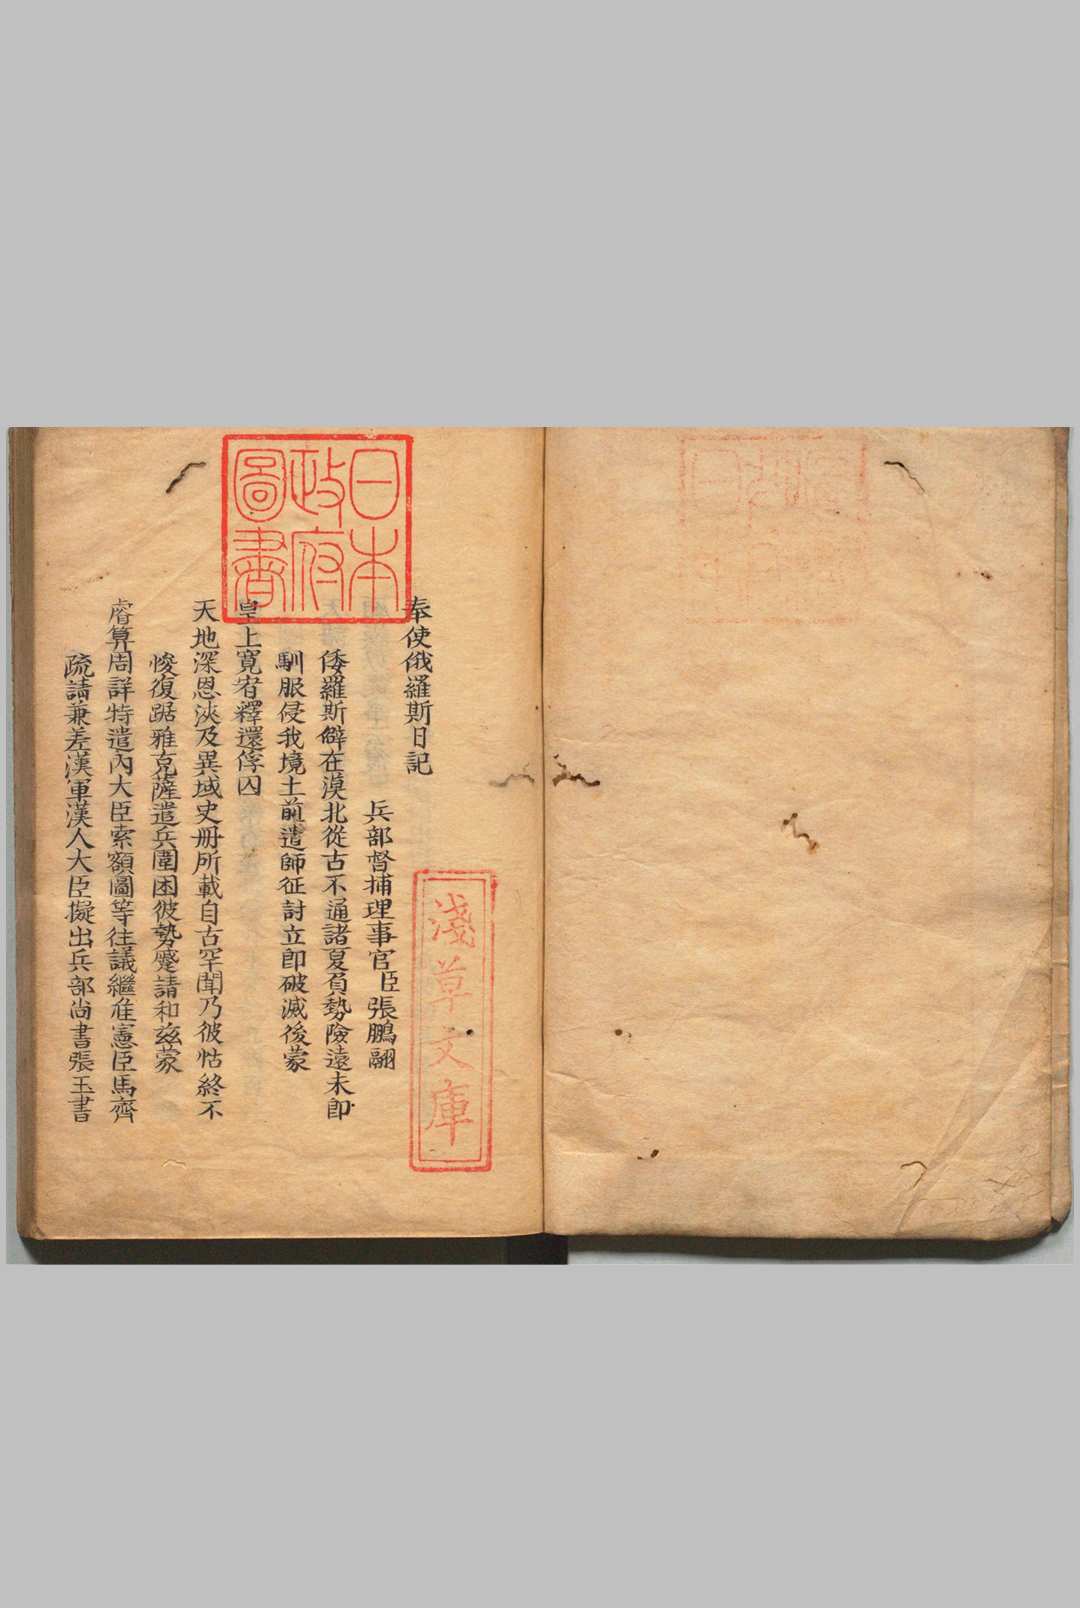 奉使俄羅斯日記
兵部督捕理事官臣張鵬翮
倭羅斯僻在漠北從古不通諸夏負勢險遠未即
馴服侵我境土前遣師征討立即破滅後蒙
皇上寬宥釋還俘囚
天地深恩浹及異域史冊所載自古罕聞乃彼怙終不
悛復踞雅克薩遣兵圍困彼勢蹙請和茲蒙
睿算周詳特遣內大臣索額圖等往議繼准憲臣馬齊
疏請兼差漢軍漢人大臣擬出兵部尚書張玉書
日本
政府
圖書
淺草文庫